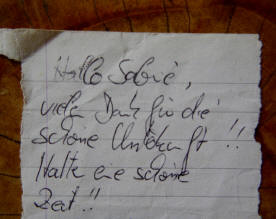 Hallo Sabine,
vielen Dank für die
schöne Unterkunft !!
Hatte eine schöne
Zeit !!